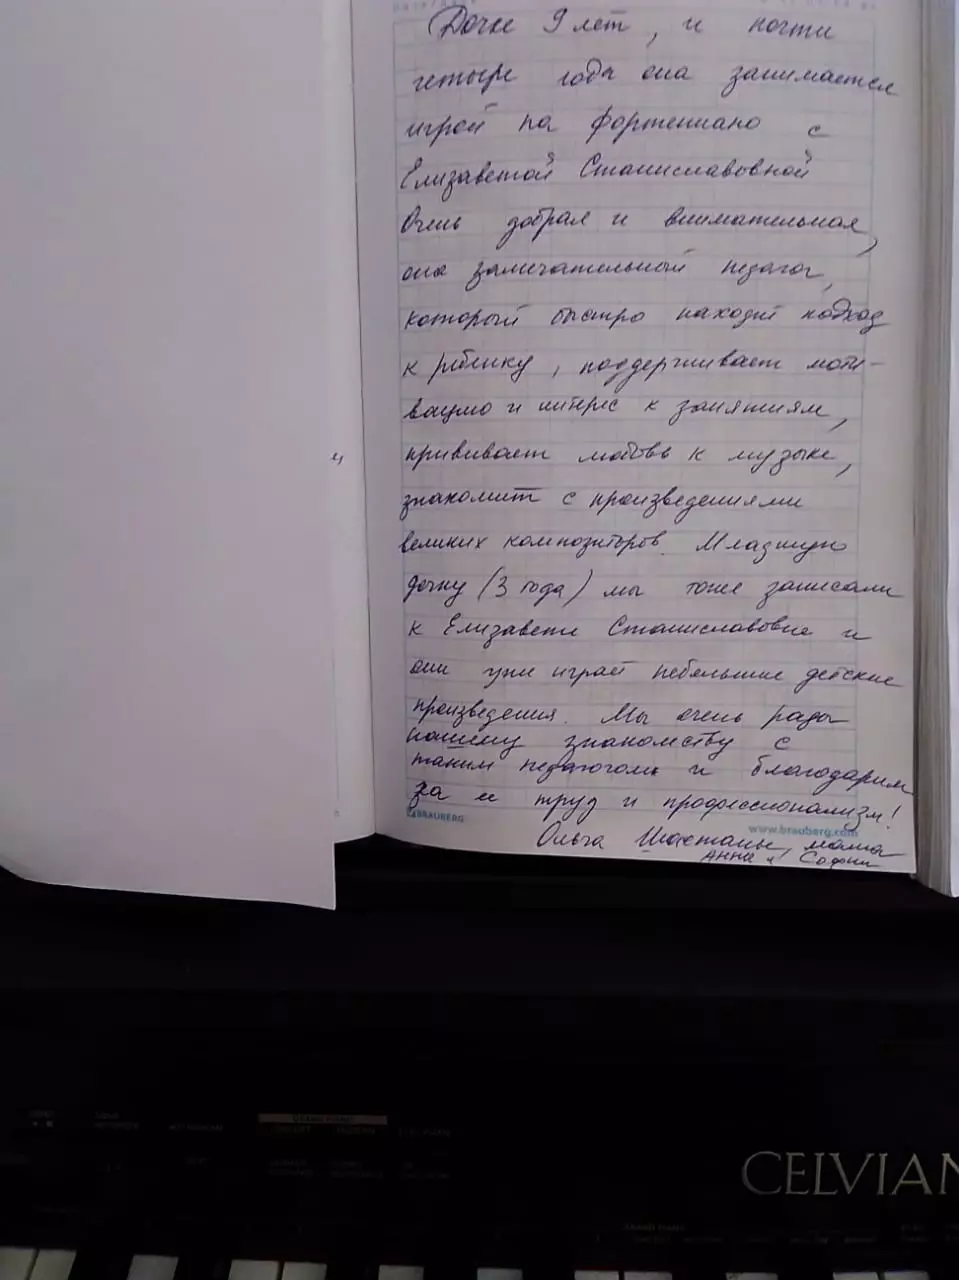 Дочке 9 лет, и почти
четыре года она занимается
игрой на фортепиано с
Елизаветой Станиславовной
Очень добрая и внимательная,
она замечательный педагог,
который быстро находит подход
к ребенку, поддерживает моти-
вацию и интерес к занятиям,
прививает любовь к музыке,
знакомит с произведениями
великих композиторов. Младшую
дочку (3 года) мы тоже записали
к Елизавете Станиславовне и
они уже играет небольшие детские
произведения. Мы очень рады
нашему знакомству с
таким педагогом и благодарим
за ее труд и профессионализм!
BRAUBERG
www.brauberg.com
Ольга, мама
Анны и Софии
CELVIAN